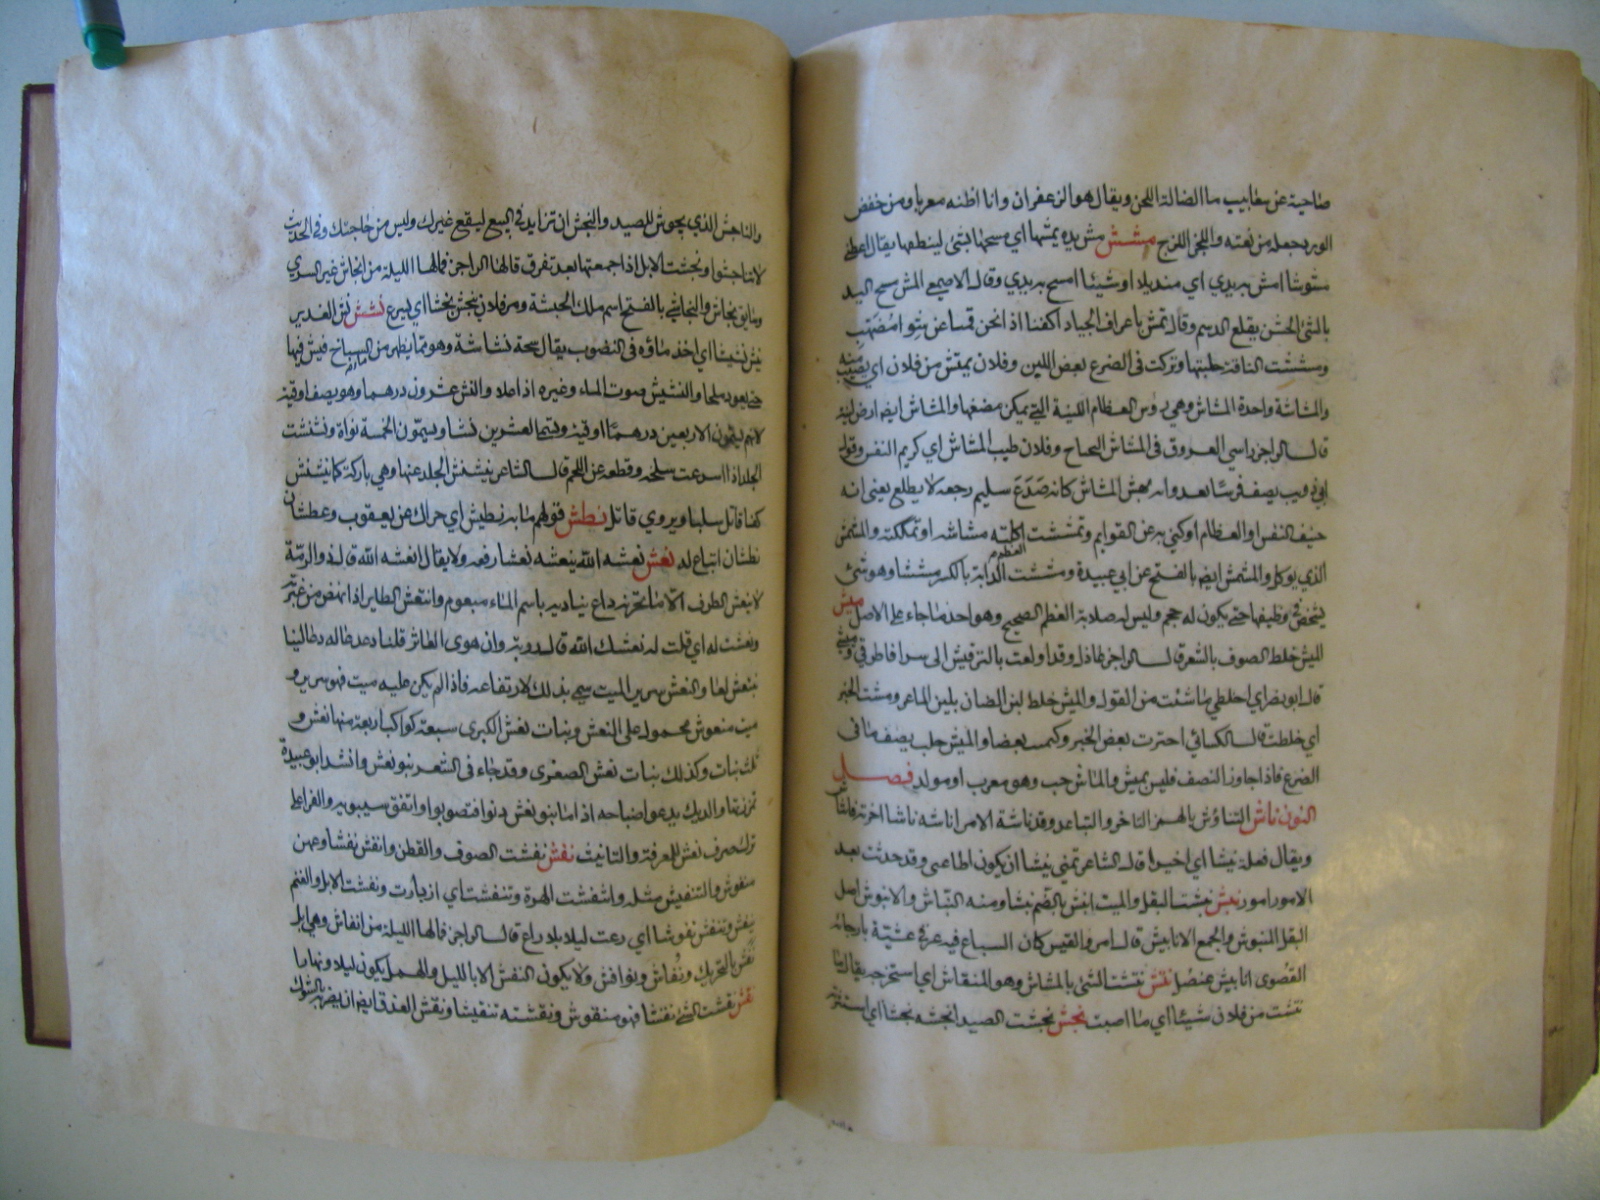 ضاحية عن سقابيب ماء الضالة اللجن ويقال هو الزعفران وانا اظنه معربا ومن خفض
الورد جعله من نعته واللجن اللزج مشش مش يده يمشها اي مسحها بشئ لينظفها يقال اعطني
مشوشا امش به يدي اي منديلا او شيئا امسح به يدي وقال الاصمعي المش مسح اليد
بالشئ الخشن يقلع الدسم وقال نمش باعراف الجياد اكفنا اذا نحن قمنا عن شواء مضهب
ومششت الناقة حلبتها وتركت في الضرع بعض اللبن وفلان يمتش من فلان اي يصيب منه
والمشاشة واحدة المشاش وهي رؤس العظام اللينة التي يمكن مضغها والمشاش ايضا ارض لينة
قال الراجز راسي العروق في المشاش البجباج وفلان طيب المشاش اي كريم النفس وقول
ابي ذويب يصف فرسا يعدو به نهش المشاش كانه صدع سليم رجعه لا يظلع يعني انه
خفيف النفس او العظام او كني به عن القوايم وتمششت العظم اكلت مشاشه او تمككته والمشمش
الذي يوكل والمشمش ايضا بالفتح عن ابي عبيدة ومششت الدابة بالكسر مششا وهو شئ
يشخص في وظيفها حتى يكون له حجم وليس له صلابة العظم الصحيح وهو احد ما جاء على الاصل ميش
الميش خلط الصوف بالشعر قال الراجز عاذل قد اولعت بالترقيش الى سرا فاطرقي وميشي
قال ابو نصر اي اخلطي ما شئت من القول والميش خلط لبن الضان بلبن الماعز ومشت الخبر
اي خلطت قال الكسائي اخبرت ببعض الخبر وكتمت بعضا والميش حلب نصف ما في
الضرع فاذا جاوز النصف فليس بميش والماش حب وهو معرب او مولد فصل
النون ناش التناؤش بالهمز التاخر والتباعد وقد ناشت الامر اناشه ناشا اخرته فانتاش
ويقال فعله نئيشا اي اخيرا قال الشاعر تمنى نئيشا ان يكون اطاعني وقد حدثت بعد
الامور امور نبش نبشت البقل والميت انبش بالضم نبشا ومنه النباش والانبوش اصل
البقل المنبوش والجمع الانابيش قال امرؤ القيس كان السباع فيه غرقى عشية بارجائه
القصوى انابيش عنصل نتش نتشت الشئ بالمنتاش وهو المنقاش اي استخرجته يقال ما
نتشت من فلان شيئا اي ما اصبت نجش نجشت الصيد انجشه نجشا اي استثرته
والناجش الذي يحوش الصيد والنجش ان تزايد في البيع ليقع غيرك وليس من حاجتك وفي الحديث
لا تناجشوا ونجشت الابل اذا جمعتها بعد تفرق قالها الراجز فما لها الليلة من انجاش غير السري
وسايق نجاش والنجاشي بالفتح اسم ملك الحبشة ومر فلان ينجش نجشا اي يسرع نشش نش الغدير
ينش نشيشا اي اخذ ماؤه في النضوب يقال سبخة نشاشة وهو ما يظهر من ماء السباخ فينش فيها
حتى يعود ملحا والنشيش صوت الماء وغيره اذا غلا والنش عشرون درهما وهو نصف اوقية
لانهم يسمون الاربعين درهما اوقية ويسمون العشرين نشا ويسمون الخمسة نواة ونشنشت
الجلد اذا اسرعت سلخه وقطعه عن اللحم قال الشاعر ينشنش الجلد عنها وهي باركة كما ينشنش
كفا قاتل سلبا ويروى فاتل نطش قولهم ما به نطيش اي حراك عن يعقوب وعطشان
نطشان اتباع له نعش نعشه الله ينعشه نعشا رفعه ولا يقال انعشه الله قال ذو الرمة
لا ينعش الطرف الا ما تخونه داع يناديه باسم الماء مبغوم وانتعش الطاير اذا نهض من عثرته
ونعشت له اي قلت له نعشك الله قال روبة وان هوى العاثر قلنا دعدعا له وعالينا
بتنعيش لعا والنعش سرير الميت سمي بذلك لارتفاعه فاذا لم يكن عليه ميت فهو سرير و
ميت منعوش محمول على النعش وبنات نعش الكبرى سبعة كواكب اربعة منها نعش و
ثلث بنات وكذلك بنات نعش الصغرى وقد جاء في الشعر بنو نعش وانشد ابو عبيدة
تمززتها والديك يدعو صباحه اذا ما بنو نعش دنوا فتصوبوا واتفق سيبويه والفراء على
ترك صرف نعش للمعرفة والتانيث نفش نفشت الصوف والقطن وانفش نفشا وعهن
منفوش والتنفيش مثله وانتفشت الهرة وتنفشت اي ازبأرت ونفشت الابل والغنم
ينفش وتنفش نفوشا اي رعت ليلا بلا راع قال الراجز فما لها الليلة من انفاش وهي ابل
نفش بالتحريك ونفاش ونوافش ولا يكون النفش الا بالليل والهمل يكون ليلا ونهارا
نقش نقشت الشئ نقشا فهو منقوش ونقشته تنقيشا ونقش العذق ايضا ان يضرب بالشوك